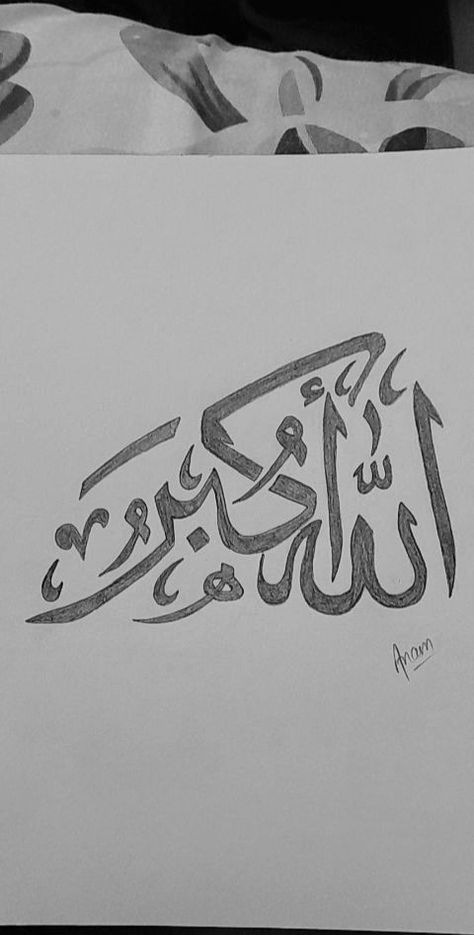 الله أكبر
Anam